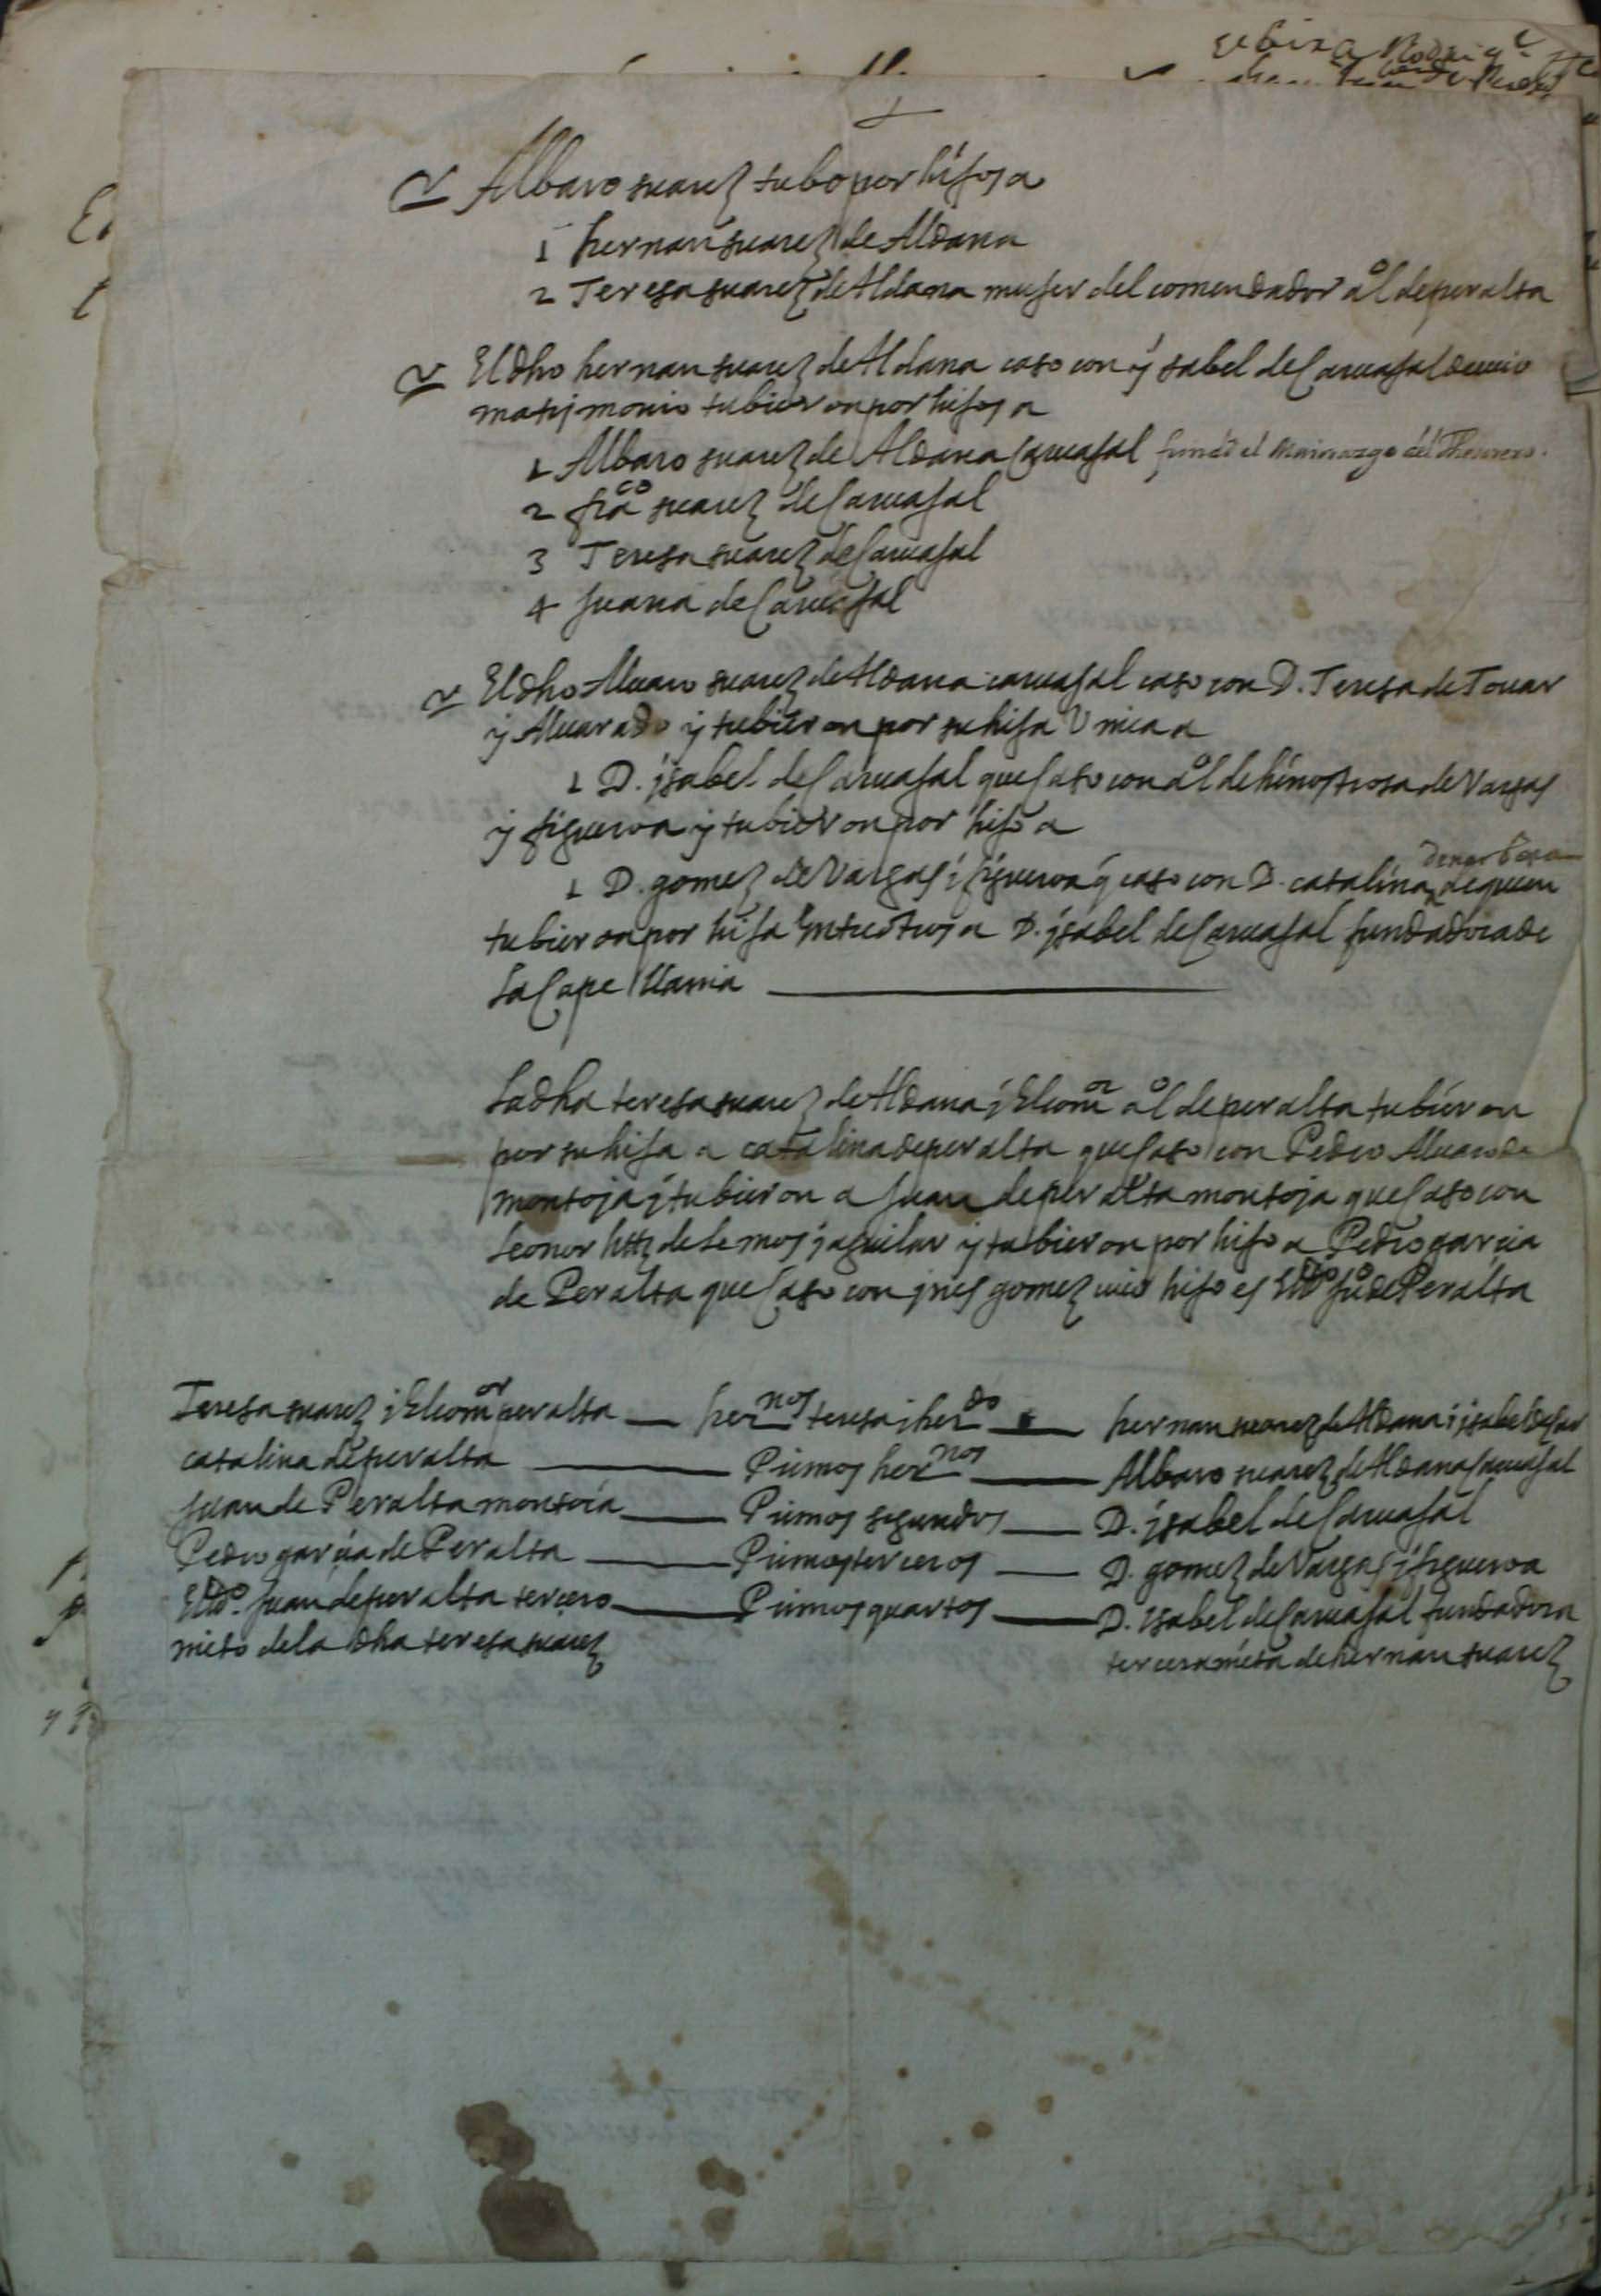 Albaro suarez tubo por hijos a
1 hernan suarez de Aldana
2 Teresa suarez de Aldana mujer del comendador aº l de peralta
El dho hernan suarez de Aldana caso con ysabel de Carvajal de cuio
matrimonio tubieron por hijos a
1 Albaro suarez de Aldana Carvajal fundó el Maiorazgo del Thesorero.
2 franco suarez de Carvajal
3 Teresa suarez de Carvajal
4 Juana de Carvajal
El dho Alvaro suarez de Aldana carvajal caso con D. Teresa de Tovar
y Alvarado y tubieron por su hija Unica a
1 D. ysabel de Carvajal que Caso con aº l de hinostrosa de Vargas
y figueroa y tubieron por hijo a
1 D. gomez de Vargas i figueroa q caso con D. catalina de quien
tubieron por hija entre otros a D. ysabel de Carvajal fundadora de
La Capellania
La dha teresa suarez de Aldana i El comor aº l de peralta tubieron
por su hija a catalina de peralta que Caso con Pedro Alvaro de
montoja i tubieron a Juan de peralta montoja que Caso con
Leonor de Lemos i aguilar y tubieron por hijo a Pedro garcia
de Peralta que Caso con ynes gomez cuio hijo es Ldo Juº de Peralta
Teresa suarez i El comor peralta — hernos teresa i herdo — hernan suarez de Aldana i ysabel de Car
catalina de peralta — Primos hernos — Albaro suarez de Aldana Carvajal
Juan de Peralta montoia — Primos segundos — D. ysabel de Carvajal
Pedro garcia de Peralta — Primos terceros — D. gomez de Vargas i figueroa
Ldo. Juan de peralta tercero — Primos quartos — D. ysabel de Carvajal fundadora
nieto de la dha teresa suarez tercera nieta de hernan suarez